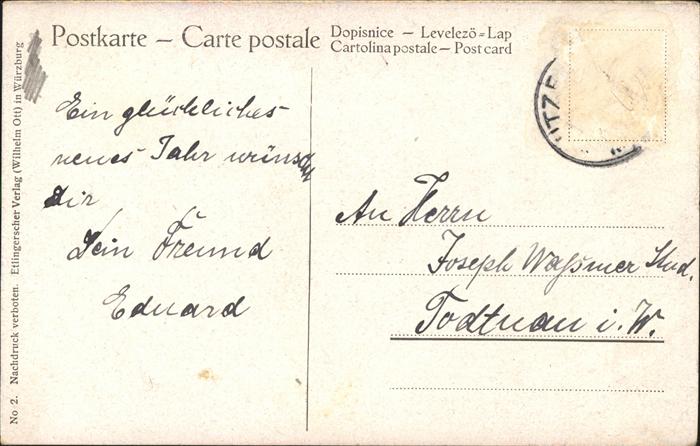 Postkarte – Carte postale
Dopisnice – Levelező=Lap
Cartolina postale – Post card
Ein glückliches
neues Jahr wünscht
Dir
Dein Freund
Eduard
An Herrn
Joseph Waßmer Stud.
Todtnau i. W.
No 2. Nachdruck verboten. Etlingerscher Verlag (Wilhelm Ott) in Würzburg